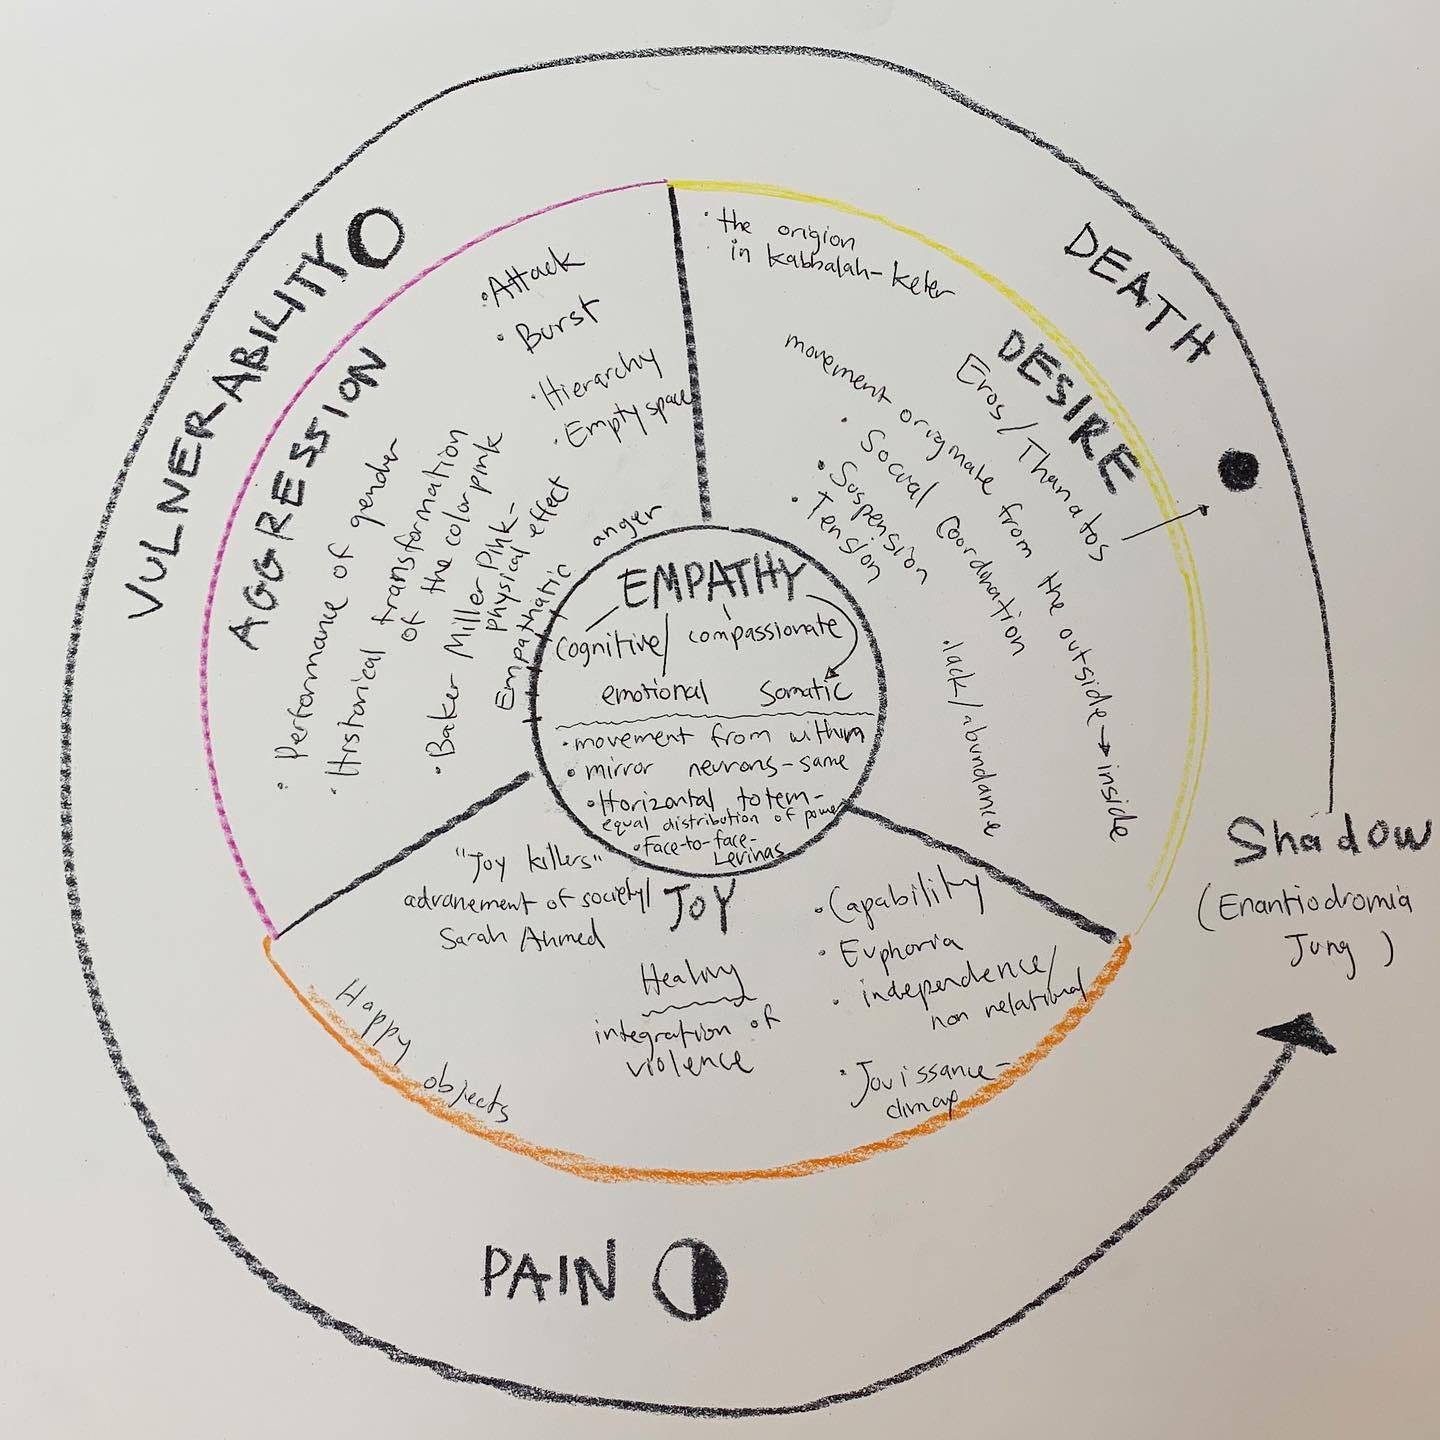 VULNERABILITY
AGGRESSION
• Attack
• Burst
• Hierarchy
• Empty space
• Performance of gender
• Historical transformation
of the color pink
• Baker Miller Pink-
physical effect
Empathatic anger
DEATH
DESIRE
• the origion
in kabbalah- keter
Eros/Thanatos
movement originate from the outside→inside
• Social Coordination
• Suspension
• Tension
• lack/abundance
EMPATHY
Cognitive/ compassionate
emotional Somatic
• movement from within
• mirror neurons-same
• Horizontal totem-
equal distribution of power
• Face-to-face-
Levinas
JOY
"Joy killers"
advancement of society/
Sarah Ahmed
Happy objects
Healing
integration of
violence
• Capability
• Euphoria
• independence/
non relational
• Jouissance-
climax
PAIN
Shadow
(Enantiodromia
Jung)